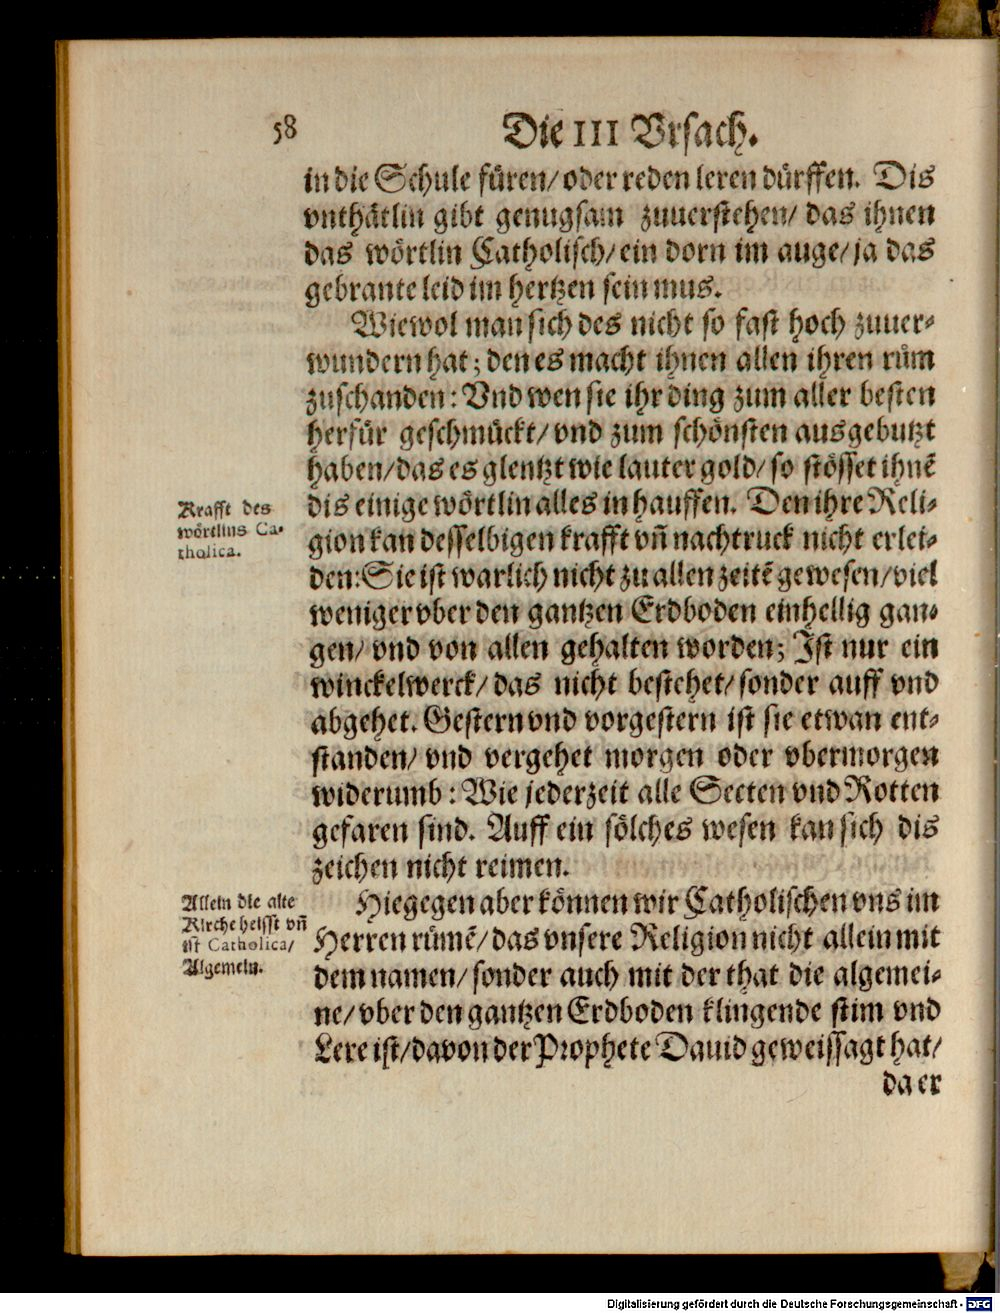 58
Die III Vrsach.
in die Schule füren/ oder reden leren dürffen. Dis
vnthätlin gibt genugsam zuuerstehen/ das ihnen
das wörtlin Catholisch/ ein dorn im auge/ ja das
gebrante leid im hertzen sein mus.
Wiewol man sich des nicht so fast hoch zuuer-
wundern hat; den es macht ihnen allen ihren rům
zuschanden: Vnd wen sie ihr ding zum aller besten
herfür geschmückt/ vnd zum schönsten ausgebutzt
haben/ das es glentzt wie lauter gold/ so stösset ihnē
Krafft des
wörtlins Ca-
tholica.
dis einige wörtlin alles in hauffen. Den ihre Reli-
gion kan desselbigen krafft vñ nachtruck nicht erlei-
den: Sie ist warlich nicht zu allen zeitē gewesen/ viel
weniger vber den gantzen Erdboden einhellig gan-
gen/ vnd von allen gehalten worden; Ist nur ein
winckelwerck/ das nicht bestehet/ sonder auff vnd
abgehet. Gestern vnd vorgestern ist sie etwan ent-
standen/ vnd vergehet morgen oder vbermorgen
widerumb: Wie jederzeit alle Secten vnd Rotten
gefaren sind. Auff ein sölches wesen kan sich dis
zeichen nicht reimen.
Allein die alte
Kirche heisst vñ
ist Catholica/
Algemein.
Hiegegen aber können wir Catholischen vns im
Herren rümē/ das vnsere Religion nicht allein mit
dem namen/ sonder auch mit der that die algemei-
ne/ vber den gantzen Erdboden klingende stim vnd
Lere ist/ davon der Prophete Dauid geweissagt hat/
da er
Digitalisierung gefördert durch die Deutsche Forschungsgemeinschaft - DFG